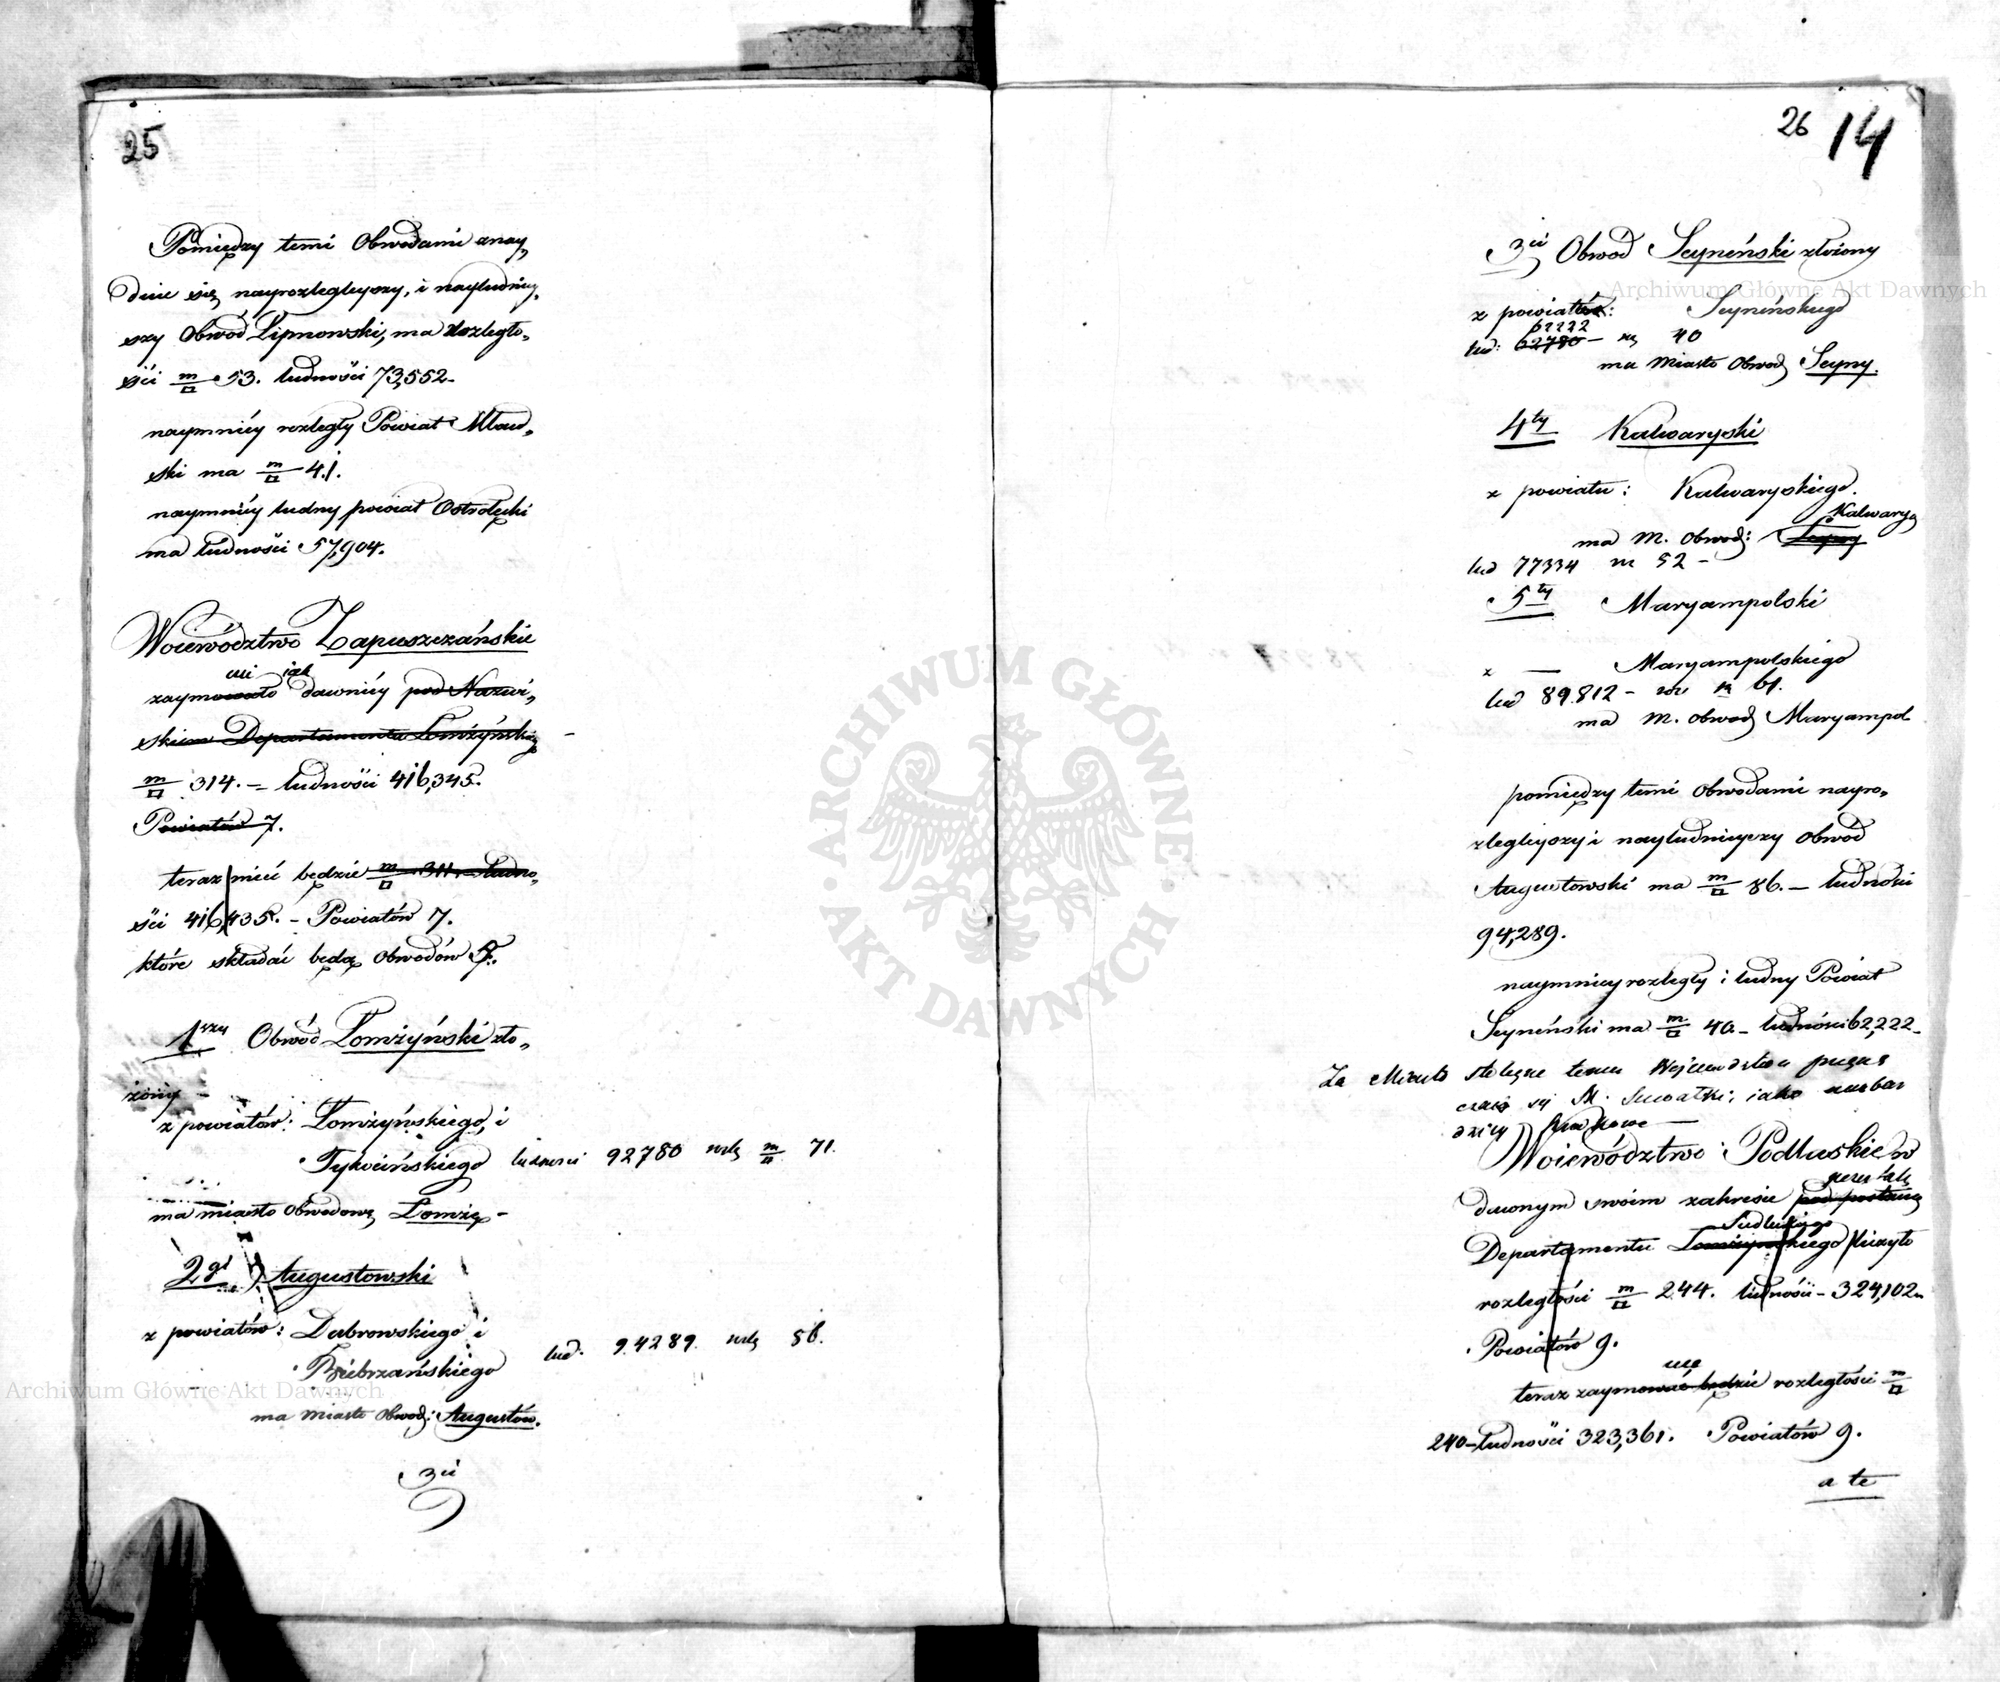 25
Pomiędzy temi Obwodami znay„
duie się nayrozlegleyszy, i nayludniey„
szy Obwód Lipnowski, ma Rozległo„
ści m/□ 53. ludności 73,552.
naymniéy rozległy Powiat Mław„
ski ma m/□ 41.
naymniéy ludny powiat Ostrołęcki
ma ludności 57,904.
Woiewództwo Zapuszczańskie
iak
zaymowało dawniéy pod Nazwi„
skiem Departamentu Łomżyńskiego
m/□ 314. – ludności 416,345.
Powiatów 7.
teraz mieć będzie m/□ 314 – ludno„
ści 416,435. – Powiatów 7.
które składać będą obwodów 5.
1szy Obwód Łomżyński zło„
żony
z powiatów: Łomżyńskiego, i
Tykocińskiego ludności 92780 milę m/□ 71.
ma miasto obwodowe Łomżę –
2gi Augustowski
z powiatów: Dąbrowskiego i
Biebrzańskiego lud. 94289 milę 86.
ma miasto obwod: Augustów.
3ci
26 14
3ci Obwód Seyneński złożony
z powiatów: Seyneńskiego
62222
lud: 62780 – 40
ma Miasto obwod Seyny.
4ty Kalwaryski
z powiatu: Kalwaryskiego.
Kalwaryą
ma M. obwod: Seyny
lud 77334 m 52 –
5ty Maryampolski
z — Maryampolskiego
lud 89.812 – 61.
ma M. obwod Maryampol
pomiędzy temi obwodami nayro„
zlegleyszy i nayludnieyszy obwód
Augustowski ma m/□ 86. – ludności
94,289.
naymniey rozległy i ludny Powiat
Seyneński ma m/□ 40 – ludności 62,222 –
Za Miasto stołeczne temu Wojewodztwu
się M. Suwałki, iako nazbar
dziey
Woiewództwo Podlaskie w
dawnym swoim zakresie pod postacią
Siedleckiego
Departamentu Łomżyńskiego liczyło
rozległości m/□ 244. ludności – 324,102
Powiatów 9.
uie
teraz zaymować będzie rozległości m/□
240 – ludności 323,361. Powiatów 9.
a te
Archiwum Główne Akt Dawnych
Archiwum Główne Akt Dawnych
ARCHIWUM GŁÓWNE AKT DAWNYCH